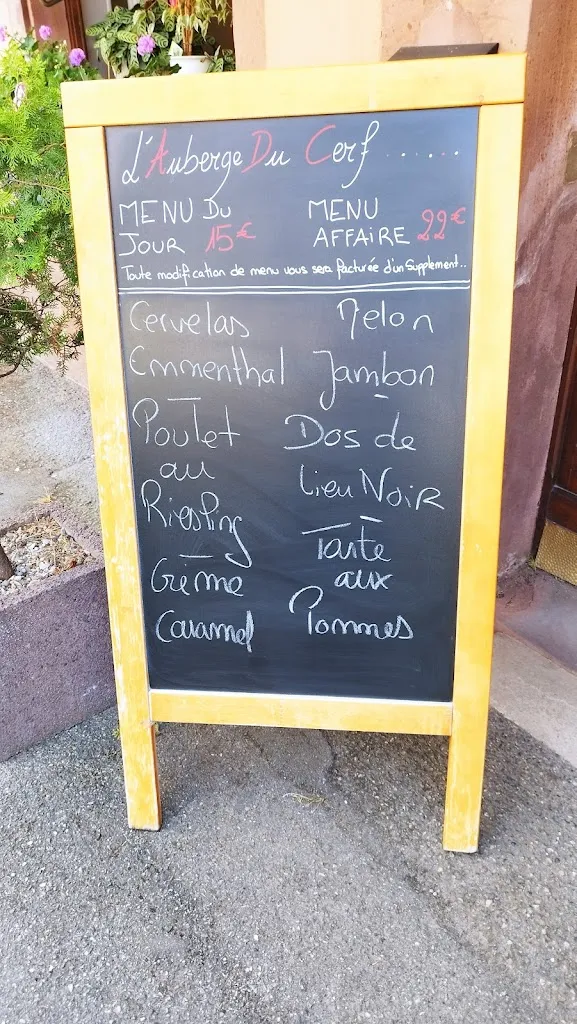 L'Auberge Du Cerf ......
MENU Du
JOUR 15€
MENU
AFFAIRE 22€
Toute modification de menu vous sera facturée d'un Supplement..
Cervelas
Emmenthal
Poulet
au
Riesling
Crème
Caramel
Melon
Jambon
Dos de
Lieu NOIR
Tarte
aux
Pommes